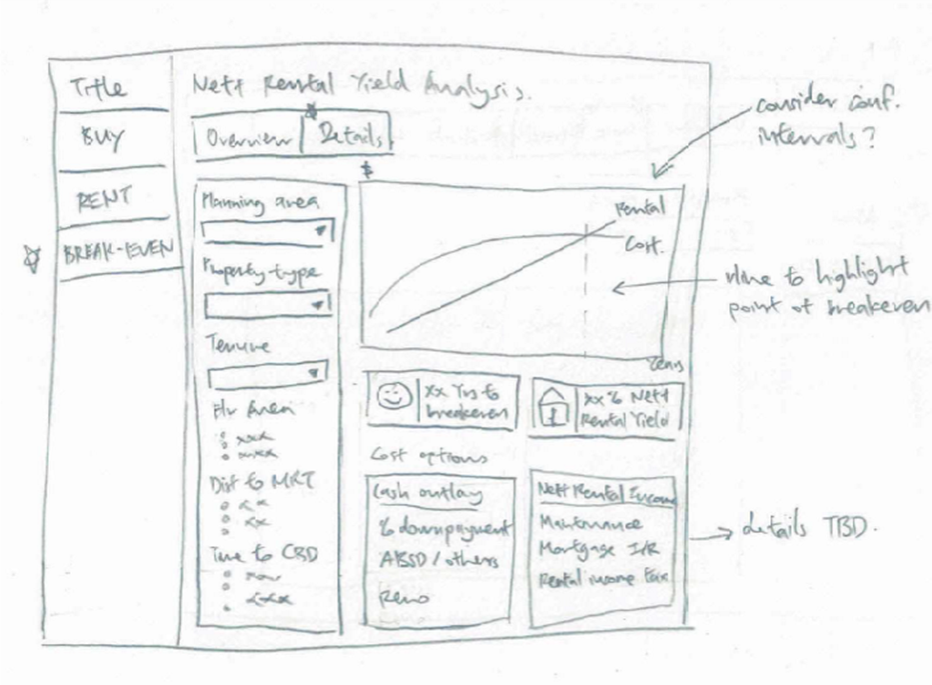 Title
BUY
RENT
BREAK-EVEN
Nett Rental Yield Analysis.
Overview
Details
Planning area
Property type
Tenure
Flr Area
xxx
xxx
Dist to MRT
xx
xx
Time to CBD
xxx
$
Rental
Cost.
Years
consider conf.
intervals?
vline to highlight
point of breakeven
xx Yrs to
breakeven
xx % Nett
Rental Yield
Cost options
Cash outlay
% downpayment
ABSD / others
Reno
Nett Rental Income
Maintenance
Mortgage I/R
Rental income tax
details TBD.